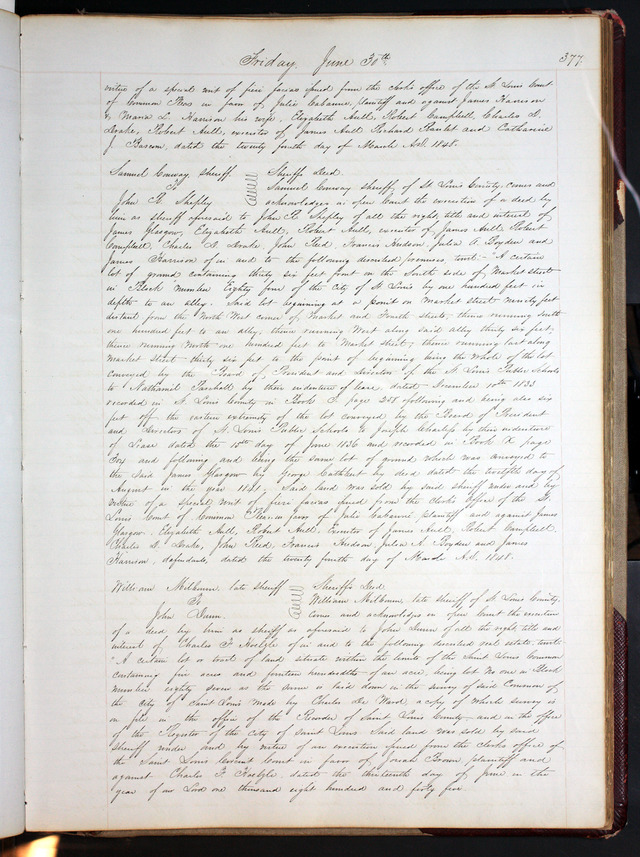 Friday, June 30th
377
virtue of a special writ of fieri facias issued from the clerks office of the St Louis Court
of Common Pleas in favor of Julia Cabanne, plaintiff and against James Harrison
& Maria L. Harrison his wife, Elizabeth Aull, Robert Campbell, Charles D.
Drake, Robert Aull, executor of James Aull Richard and Catharine
J. dated the twenty fourth day of March A.D. 1848.
Samuel Conway, sheriff Sheriffs Deed
To Samuel Conway sheriff of St Louis County, comes and
John R Shepley acknowledges in open Court the execution of a deed by
him as sheriff aforesaid to John R. Shepley of all the right title and interest of
James Glasgow, Elizabeth Aull, Robert Aull, executor of James Aull Robert
Campbell, Charles D. Drake John Reed, Francis Hudson, Julia A. Boyden and
James Harrison of in and to the following described premises, towit: "A certain
lot of ground containing thirty six feet front on the South side of Market street
in Block number Eighty four of the City of St Louis by one hundred feet in
depth to an alley. Said lot beginning at a point on Market street ninety feet
distant from the North West corner of Market and Fourth streets; thence running South
one hundred feet to an alley, thence running West along said alley thirty six feet;
thence running north one hundred feet to Market street; thence running East along
Market street thirty six feet to the point of beginning being the whole of the lot
conveyed by the Board of President and directors of the St Louis Public Schools
to Nathaniel Paschall by their indenture of lease, dated November 10th 1833
recorded in St Louis County in Book S page 258 & following and being also six
feet off the eastern extremity of the lot conveyed by the Board of President
and directors of St Louis Public Schools to Joseph Charless by their indenture
of Lease dated the 15th day of June 1836 and recorded in Book X page
and following and being the same lot of ground which was conveyed to
the said James Glasgow by George by deed dated the twelfth day of
August in the year 1841. Said land was sold by said sheriff under and by
virtue of a special writ of fieri facias issued from the clerks office of the St
Louis Court of Common Pleas in favor of Julia Cabanne, plaintiff and against James
Glasgow, Elizabeth Aull, Robert Aull, Executor of James Aull, Robert Campbell
Charles D. Drake, John Reed, Francis Hudson, Julia A. Boyden and James
Harrison, defendants, dated the twenty fourth day of March A.D. 1848.
William Milburn, late sheriff Sheriffs Deed.
To William Milburn, late sheriff of St Louis County,
John Dunn. comes and acknowledges in open Court the execution
of a deed by him as sheriff as aforesaid to John Dunn of all the right title and
interest of Charles F. of in and to the following described real estate, towit
"A certain lot or tract of land situate within the limits of the Saint Louis Common
containing five acres and fourteen hundredths of an acre, being lot No one in Block
number eighty seven as the same is laid down in the survey of said Common of
the City of Saint Louis made by Charles De Ward, a copy of which survey is
on file in the office of the Recorder of Saint Louis County and in the office
of the Register of the City of Saint Louis. Said land was sold by said
sheriff under and by virtue of an execution issued from the Clerks office of
the Saint Louis Circuit Court in favor of Josiah Brown plaintiff and
against Charles F. dated the thirteenth day of June in the
year of our Lord one thousand eight hundred and forty five